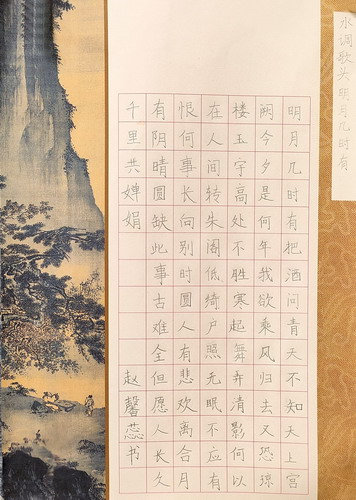 水调歌头明月几时有
明月几时有把酒问青天不知天上宫
阙今夕是何年我欲乘风归去又恐琼
楼玉宇高处不胜寒起舞弄清影何以
在人间转朱阁低绮户照无眠不应有
恨何事长向别时圆人有悲欢离合月
有阴晴圆缺此事古难全但愿人长久
千里共婵娟 赵馨蕊书